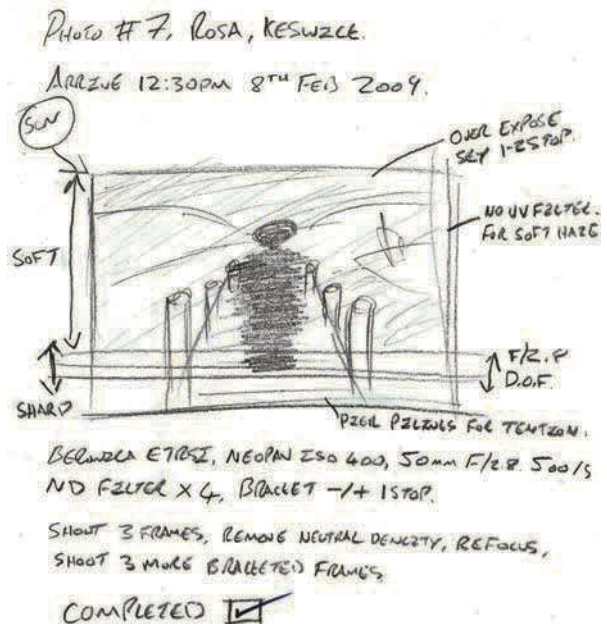 PHOTO # 7, ROSA, KESWICK.
ARRIVE 12:30PM 8TH FEB 2009.
SUN
OVER EXPOSE
SKY 1-2 STOP.
NO UV FILTER.
FOR SOFT HAZE
SOFT
F/2.8
D.O.F.
SHARP
PIER PILINGS FOR TENTION.
ETRSI, NEOPAN ISO 400, 50mm F/2.8 500/S
ND FILTER X 4, BRACKET -/+ 1 STOP.
SHOOT 3 FRAMES, REMOVE NEUTRAL DENCITY, REFOCUS,
SHOOT 3 MORE BRACKETED FRAMES
COMPLETED